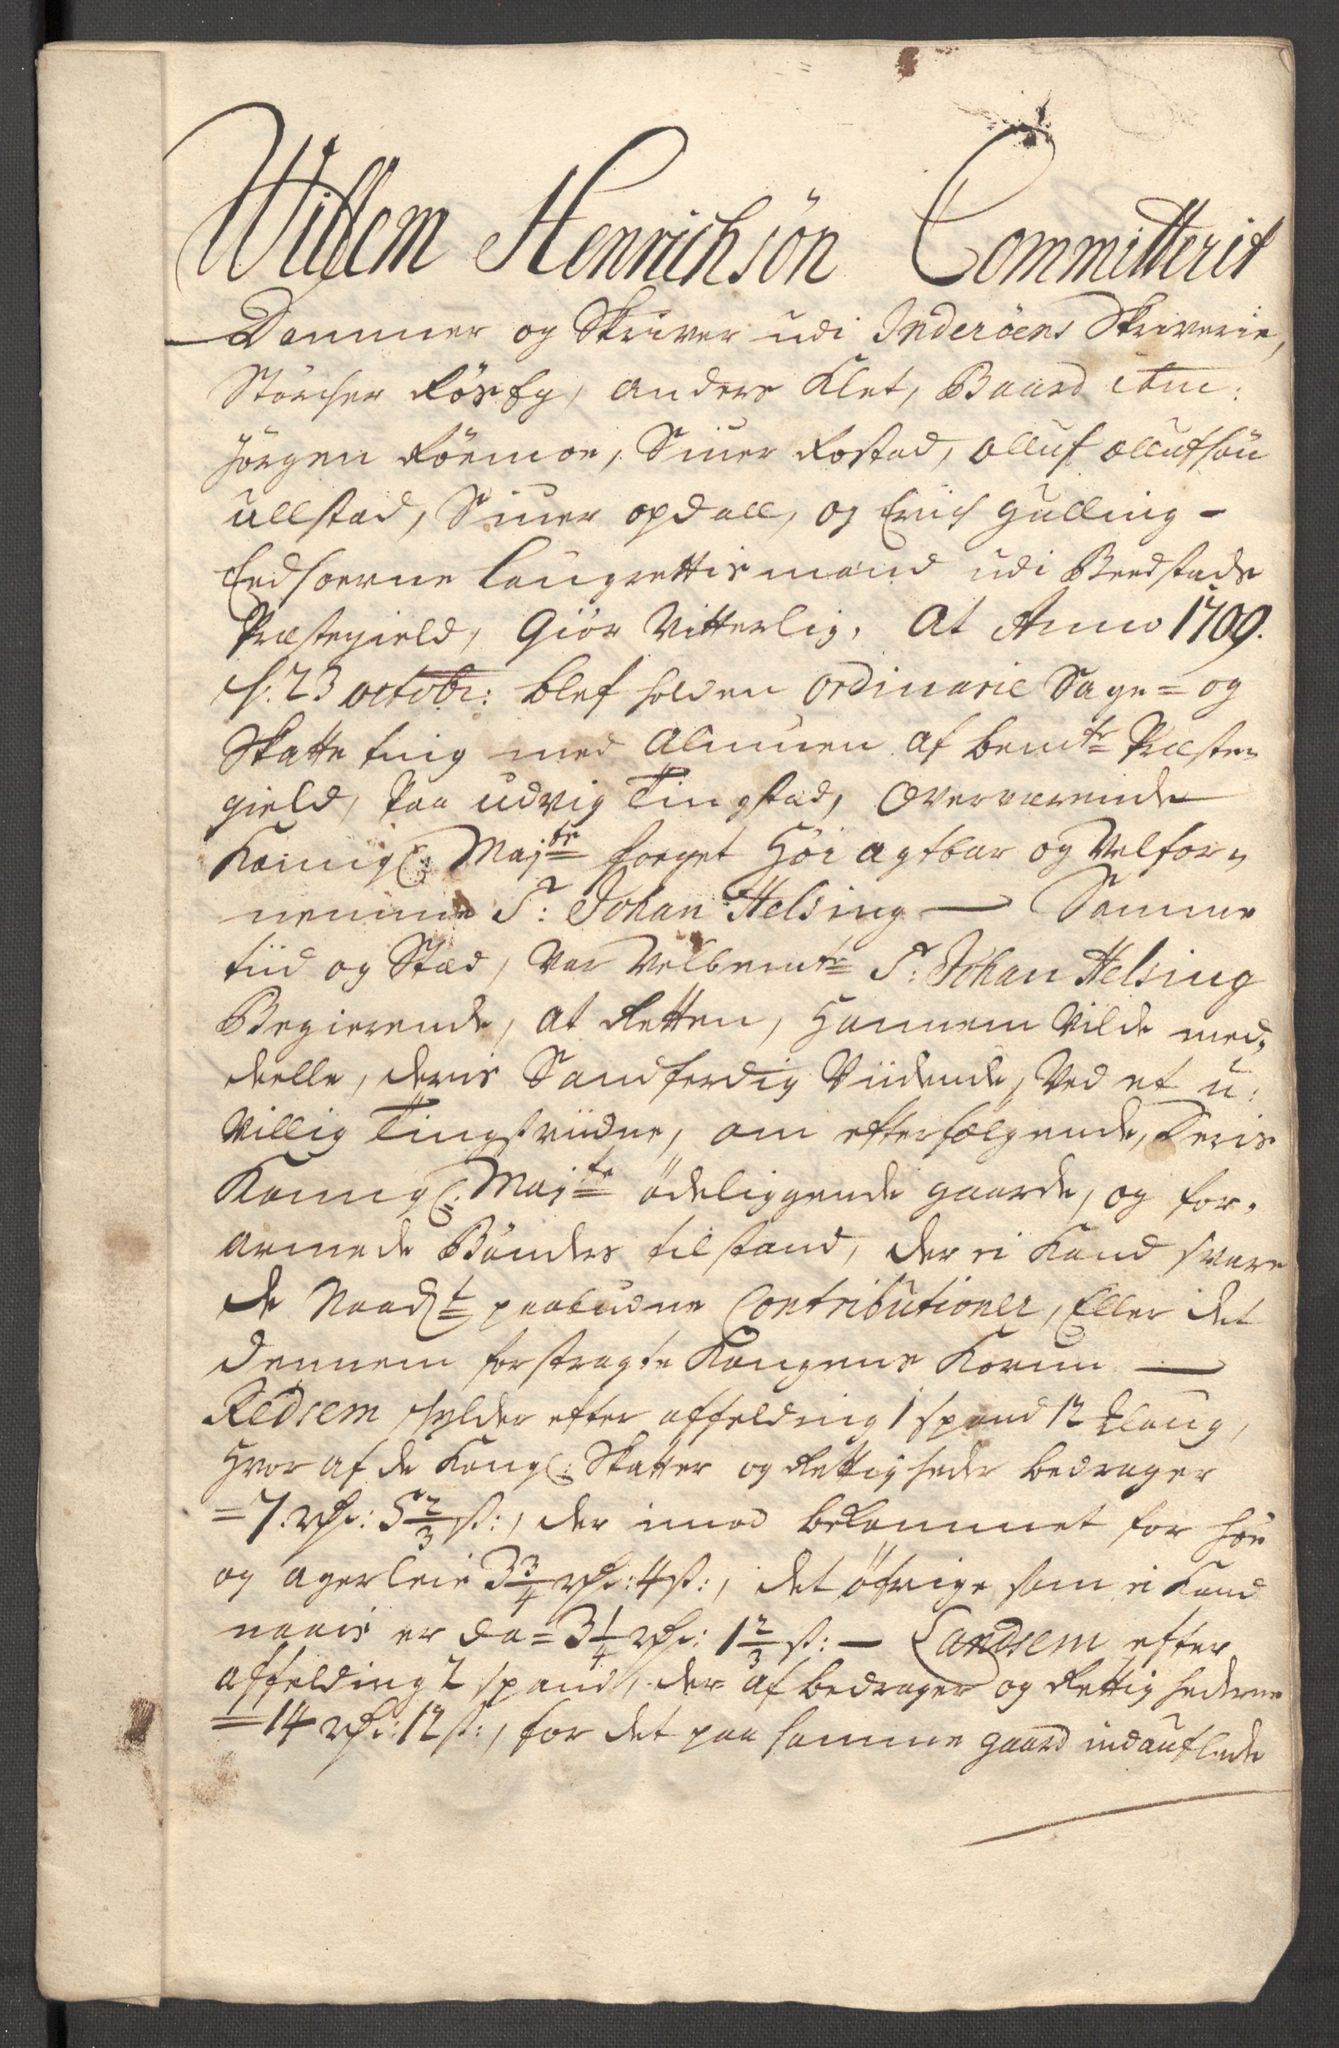 Willem Henrichsön Committerit
Dommer og Skriver udi Inderöens Skriverie,
Störcher Rösseg, Anders Klet, Baard ibm:
Jörgen Röemoe, Siuer Rostad, Olluf Ollufsön
Ullstad, Siuer Opdall, og Erich Gulling -
Eedsoerne Laugrettis mænd udi Beedstads
Præstegield, Giör Vitterlig, At Anno 1709.
d: 23 octobr: blef holden ordinarie Sage= og
Skatte ting med Almuen af bemte Præste
gield, paa Udvig Tingstad, Overværende
Kongl: Mayts foeget Höi agtbar og Velfor
nemme Sr: Johan Helsing — Samme
tiid og Stæd, var Velbemte Sr: Johan Helsing
Begierende, at Retten, Hannem Vilde med
deelle, deris Sandferdig Viidende, Ved et u:
Villig Tingsviidne, om efterfölgende, Deris
Kongl: Mayts ödeliggende gaarde, og for-
armede Bönders tilstand, der ei Kand svare
de Naadt paabudne Contributioner, Eller det
dennem forstragte Kongens Korun —
Redsem skylder efter affelding 1 spand 12 laug,
Hvor af de Kongl: Skatter og Rettigheder bedrager
=7. rdr: 5 2/3 s:, der imod bekommet for höe
og agerleie 3 3/4 rdr: 4 s:, det öfrige som ei Kand
naaes er da = 3 1/4 rdr: 1 2/3 s: — Landsem efter
affelding 2 spand, der af bedrager og Rettighederne
=14 rdr: 12 s:, for det paa samme gaard indaulede